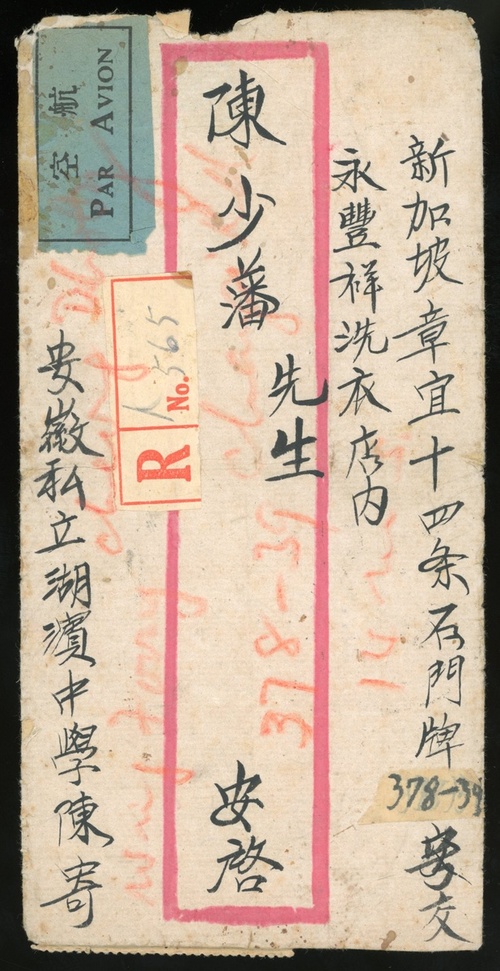 新加坡章宜十四条石門牌
378-39
交
永豐祥洗衣店内
陳少藩先生
安啓
航空
PAR AVION
R
No. 565
安徽私立湖濱中學陳寄
378-39
14